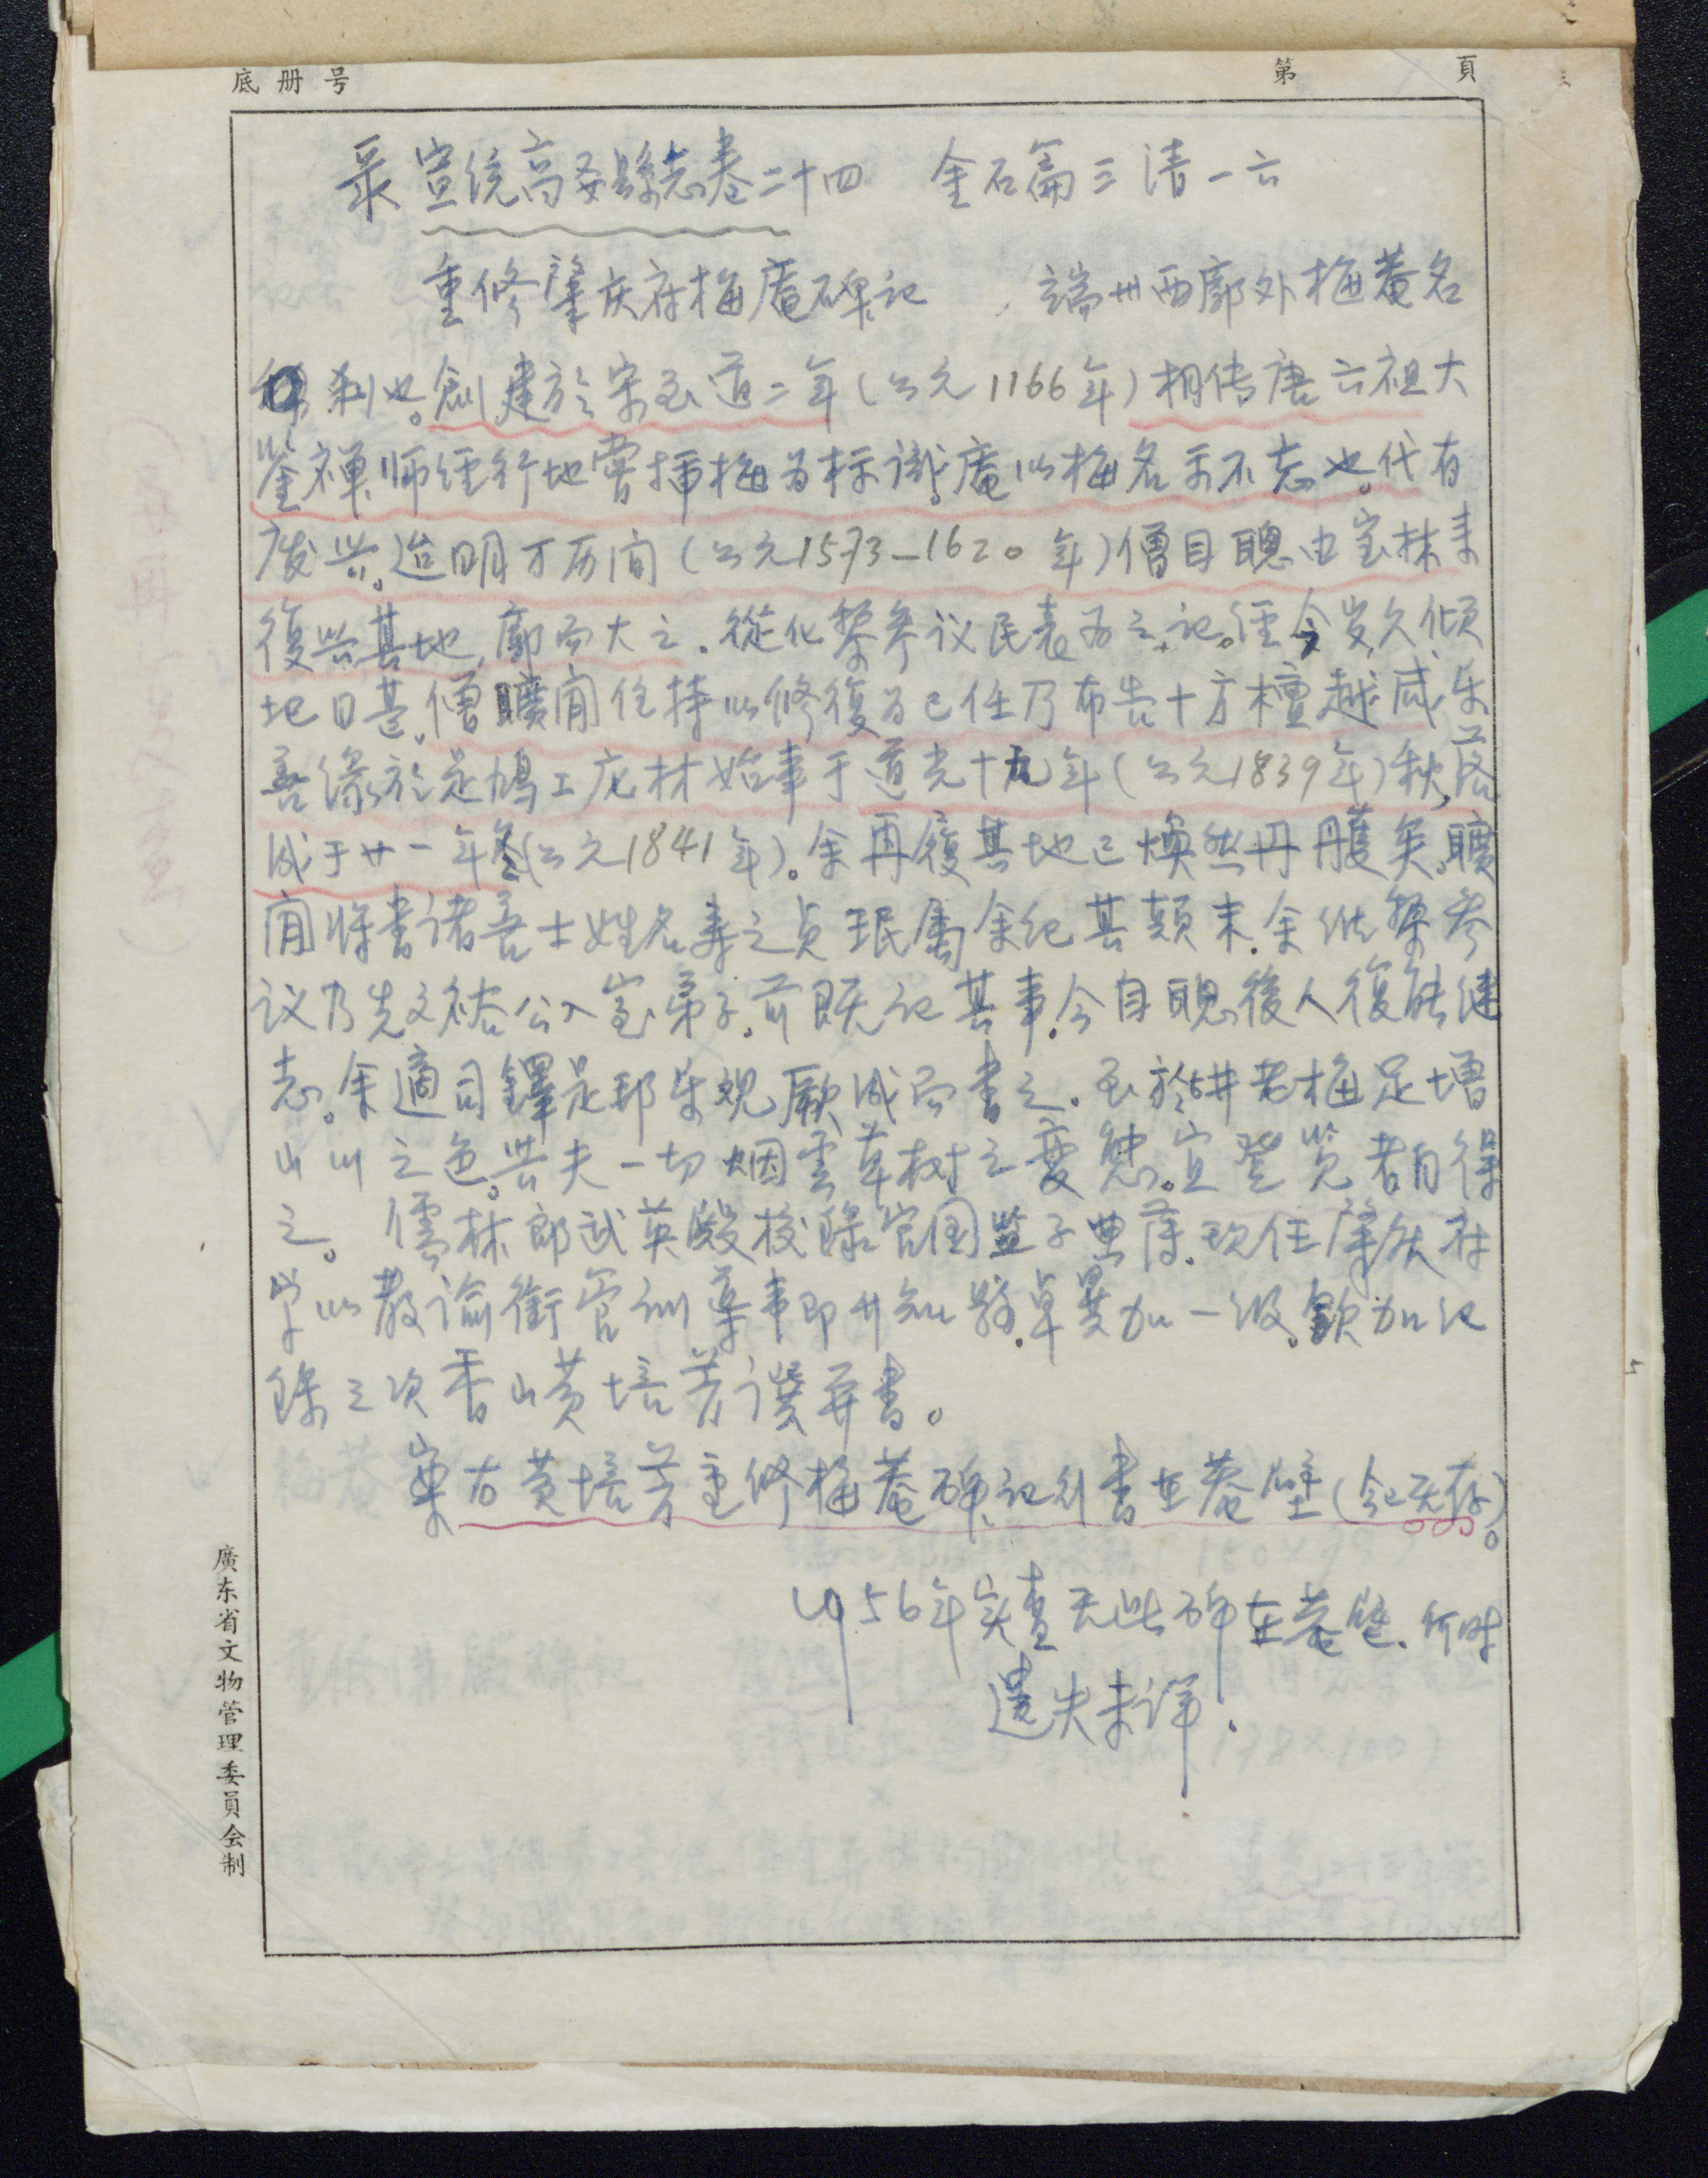 底册号 第 頁
录宣统高要縣志卷二十四 金石篇三 清一六
重修肇庆府梅庵碑记 端州西廓外梅菴名
刹也。創建於宋至道二年(公元1166年)相传唐六祖大
鉴禅师经行地嘗插梅为标識庵以梅名示不忘也。代有
废兴。迨明万历间(公元1573—1620年)僧自聰由宝林来
復兴其地,廓而大之.從化黎参议民表为之记。经今岁久傾
圮日甚。僧曠闻住持以修復为己任乃布告十方檀越咸乐
善缘於是鳩工庀材始事于道光十九年(公元1839年)秋,落
成于廿一年冬(公元1841年)。余再履其地已煥然丹雘矣。曠
闻将書诸善士姓名寿之贞珉属余纪其颠末.余维黎参
议乃先文裕公入室弟子.前既记其事.今自聰後人復能继
志。余適司鐸是邦乐观厥成而書之。至於井老梅足增
山川之色。与夫一切烟雲草树之变態。宜登览者自得
之。儒林郎武英殿校録官国监子典簿.现任肇庆府
学以教谕銜管训導事即升知縣.卓異加一级。欽加纪
録三次香山黄培芳譔并書。
案右黄培芳重修梅菴碑记刊書在菴壁(今已无存)。
1956年实查无此碑在菴壁.何时
遗失未详.
廣东省文物管理委員会制